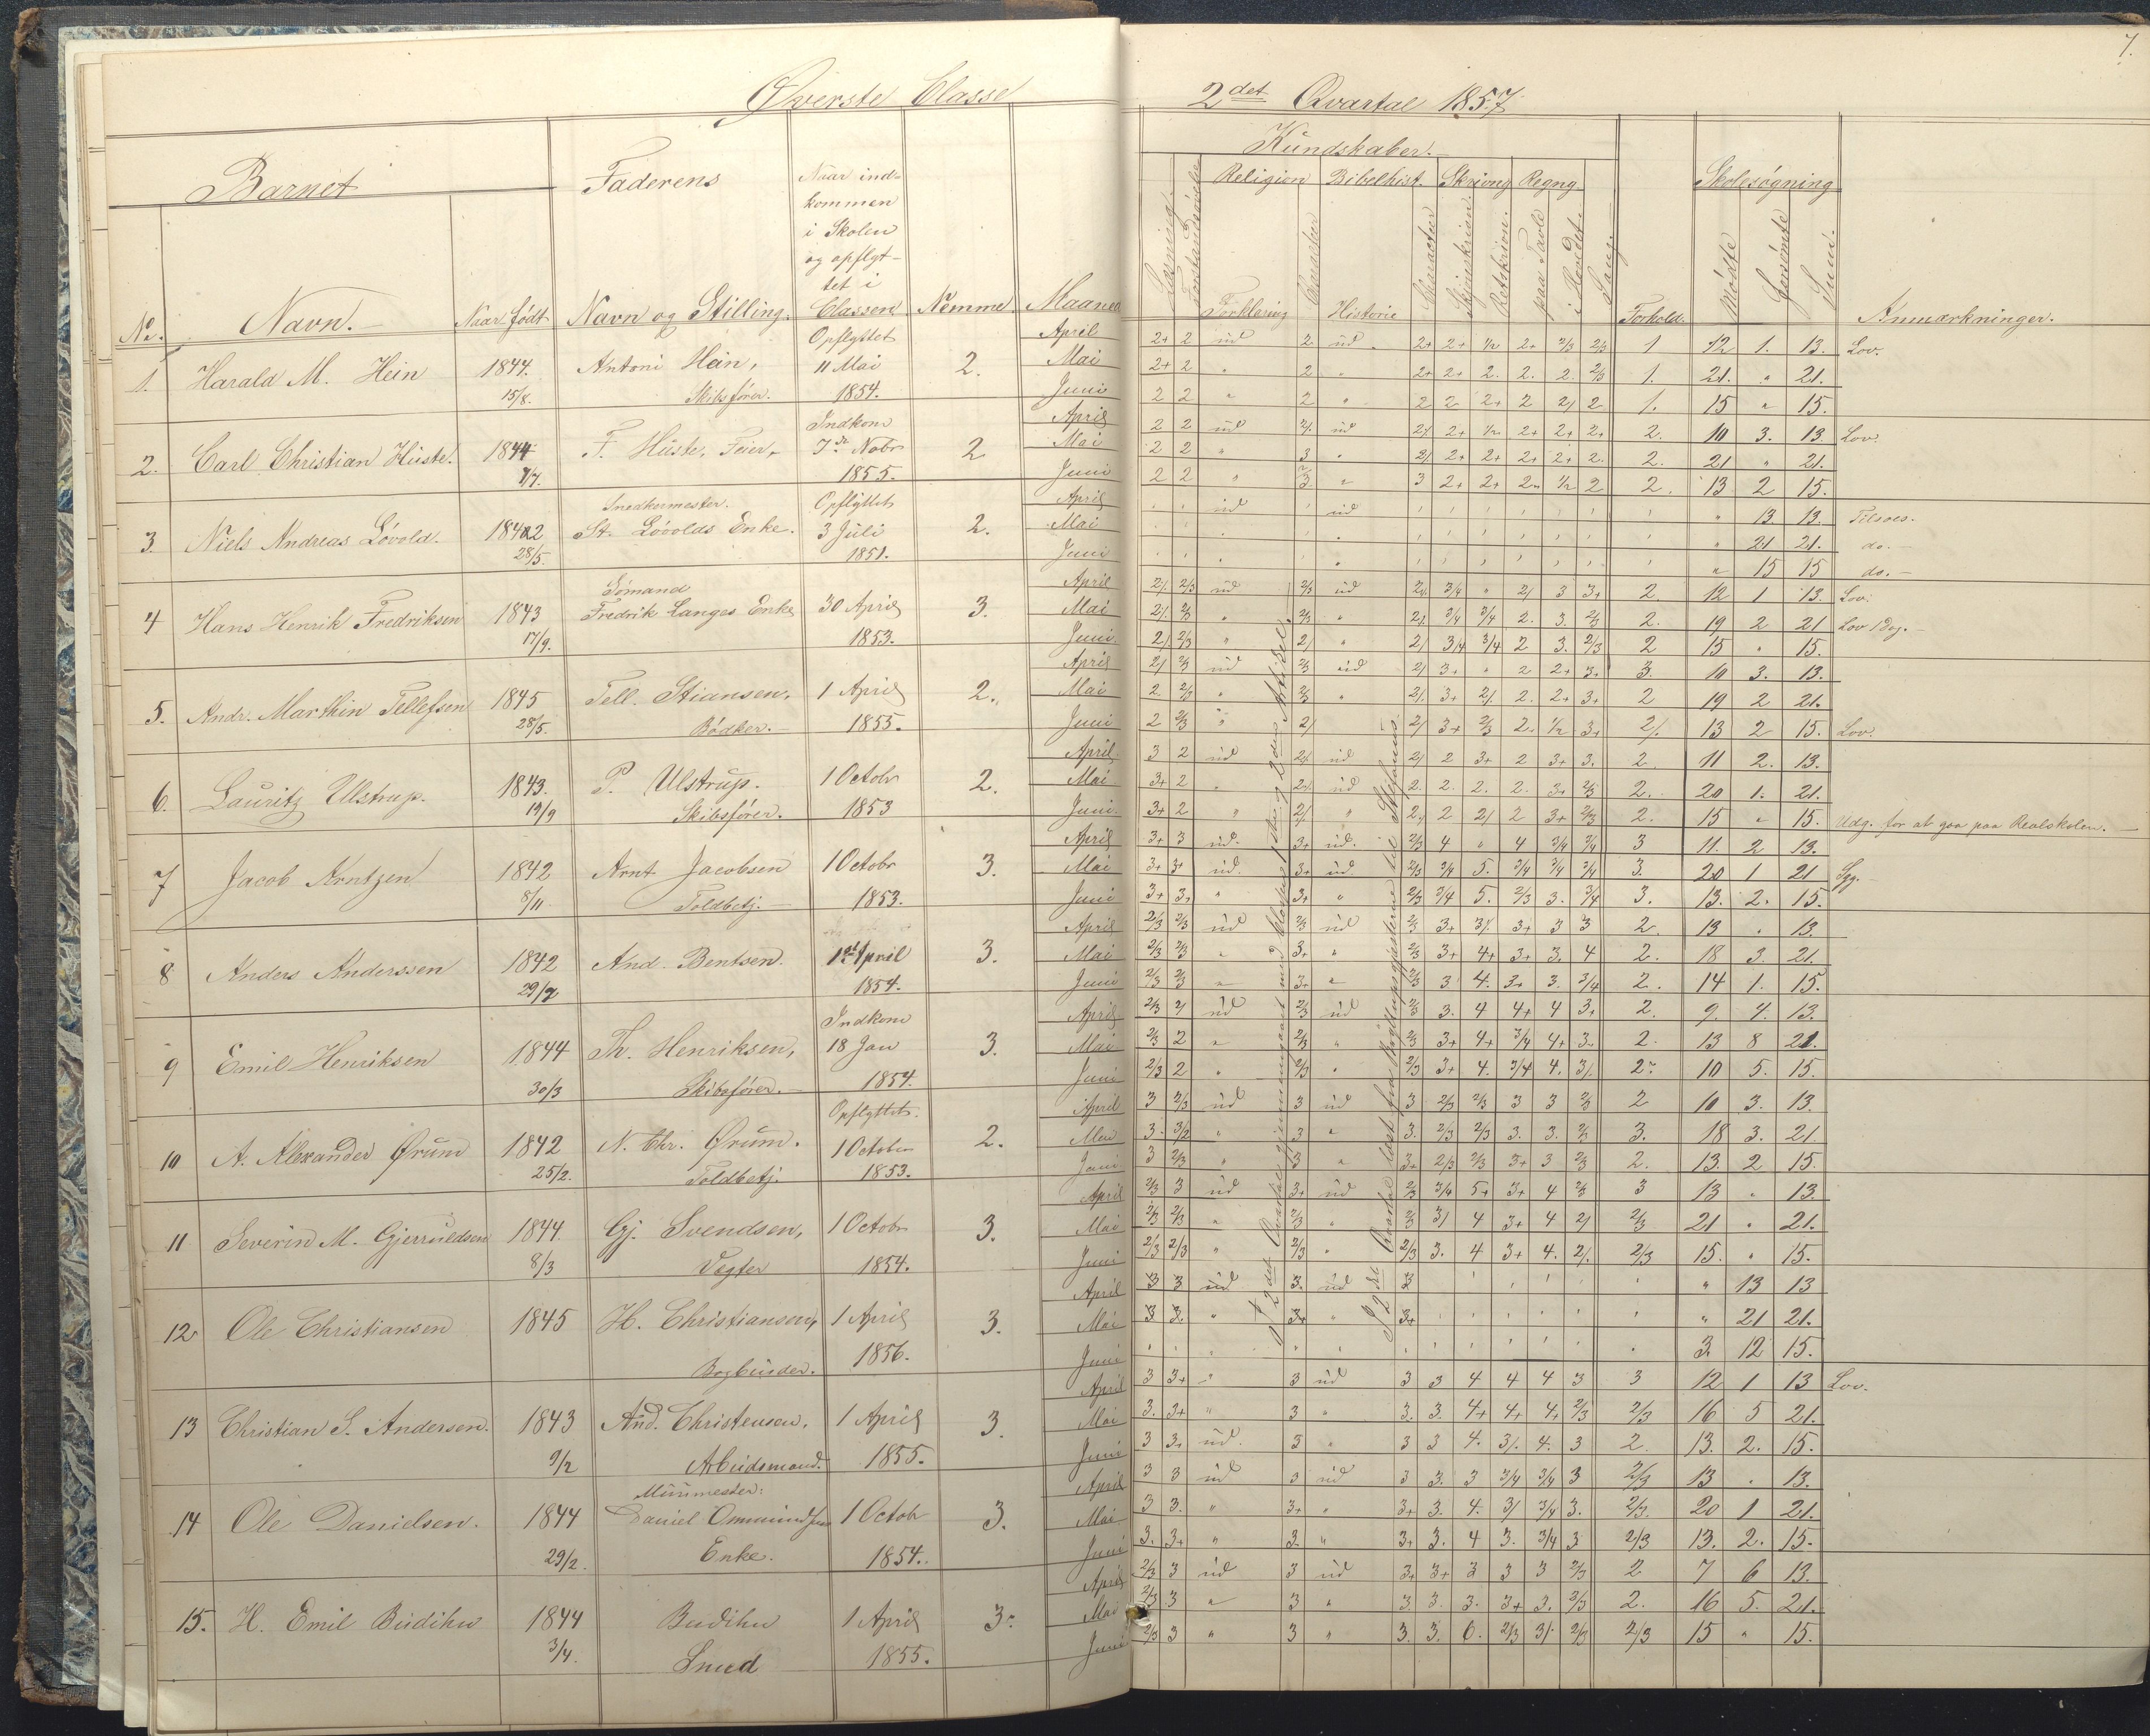 7.
Øverste Classe
2det Qvartal 1857.
Barnet
Faderens
Naar ind-
kommen
i Skolen
og opflyt-
tet i
Classen
No.
Navn.
Naar født
Navn og Stilling.
Nemme
Maaned
Kundskaber.
Religion Bibelhist. Skrivng Regng.
Forklaring
Historie
Retskrivn.
paa Tavle
i Hovdet.
Sang.
Forhold.
Skolesøgning
Mødte
Forsømte
Sum.
Anmærkninger.
1. Harald M. Hein 1844. 15/8. Antoni Hein, Skibsfører. Opflyttet 11 Mai 1854. 2.
April 2+ 2 ud 2 ud 1 12 1. 13. Lov.
Mai 2+ 2 " 2 " 2+ 2+ 2. 2. 2. 2/3 1. 21. " 21.
Juni 2 2 " 2 " 2 2 2+ 2 2/ 2 1. 15 " 15.
2. Carl Christian Huste. 1844 F. Huste, Feier, Indkom 7de Nobr 1855. 2
April 2 2 ud ud 2. 10 3. 13. Lov.
Mai 2 2 " 3 " 2/ 2+ 2+ 2+ 2+ 2. 2. 21 " 21.
Juni 2 2 " 3 " 3 2+ 2+ 1/2 2 2. 13 2 15.
3. Niels Andreas Løvold. 1842 28/5. Snedkermester. St. Løvolds Enke. Opflyttet 3 Juli 1851. 2.
April ud ud " 13 13. Tilsøes.
Mai " 21 21. do.
Juni " 15 15 do.
4 Hans Henrik Fredriksen 1843 17/9. Sømand Fredrik Langes Enke 30 April 1853. 3.
April 2/. 2/3 ud 2/3 ud 2/. 3/4 " 2/ 3 3+ 2 12 1 13. Lov.
Mai 2/. 2/3 " 2/3 " 2/. 3/4 3/4 2. 3. 2/3 2. 19 2 21 Lov 1 Dag.
Juni 2/ 2/3 " 2/ " 2/ 3/4 3/4 2 3. 2/3 2 15 " 15.
5. Andr. Marthin Tellefsen 1845 28/5. Tell. Stiansen, Bødker. 1 April 1855. 2.
April 2/ 2/3 ud 2/3 ud 2/ 3+ " 2 2+ 3+ 3. 10 3. 13.
Mai 2. 2/3 " 2/3 " 2/. 3+ 2/. 2. 2+ 3+ 2 19 2 21.
Juni 2 2/3 " 2/ 2/ 3+ 2/3 2. 1/2 3+ 2/. 13 2 15. Lov.
6. Lauritz Ulstrup. 1843. 19/9 P. Ulstrup. Skibsfører. 1 Octobr 1853 2.
April 3 2 ud 2/. ud 2/ 2 3+ 2 3+ 3. 2. 11 2. 13.
Mai 3+ 2 2/. ud 2. 2. 2. 2. 3+ 2/3 2. 20 1. 21.
Juni 3+ 2 " 2/. " 2/ 2 2/ 2 3+ 2/3 2. 15 " 15. Udg. for at gaa paa Realskolen.
7 Jacob Arntzen 1842 8/11. Arnt Jacobsen Toldbetj. 1 Octobr 1853. 3.
April 3+ 3 ud. 3+ ud. 2/3 4 " 4 3/4 3/4 3 11. 2 13.
Mai 3+ 3+ ud. 3+ ud. 2/3 3/4 5. 3/4 3/4 3/4 3. 20 1 21 Syg.
Juni 3+ 3+ " 3+ " 2/3 3/4 5. 2/3 3. 3/4 3. 13. 2. 15.
8 Anders Anderssen 1842 29/7 And. Bentsen. 1st April 1854. 3.
April 2/3 2/3 ud 2/3 ud 2/3 3+ 3/. 3+ 3 3 2. 13 " 13.
Mai 2/3 2/3 " 3+ " 2/3 3+ 4+ 3+ 3. 4 2. 18 3. 21.
Juni 2/3 2/3 " 3+ " 2/3 3. 4. 3+ 3. 3/4 2. 14 1. 15.
9 Emil Henriksen 1844 30/3 Th. Henriksen, Skibsfører. Indkom 18 Jan 1854. 3.
April 2/3 2/ ud 2/3 ud 2/3 3. 4 4+ 4 3+ 2. 9. 4. 13.
Mai 2/3 2 " 2/3 " 2/3 3+ 4+ 3/4 4+ 3. 2. 13 8 21.
Juni 2/3 2 " 2/3 " 2/3 3+ 4. 3/4 4. 3/. 2. 10 5. 15.
10 A. Alexander Ørum 1842 25/2. N. Chr. Ørum. Toldbetj. Opflyttet. 1 October 1853. 2.
April 3 2/3 ud 3 ud 3 2/3 2/3 3 3 2/3 2 10 3. 13.
Mai 3. 3/2 " 3 " 3. 2/3 2/3 3. 3. 2/3 3. 18 3. 21.
Juni 3 2/3 " 3 " 3+ 2/3 2/3 3+ 3 2/3 2. 13. 2 15.
11 Severin M. Gjeruldsen 1844. 8/3 Gj. Svendsen, Vegter 1 Octobr 1854. 3.
April 2/3 3 ud 3+ ud 2/3 3/4 5+ 3+ 4 2/3 3 13 " 13.
Mai 2/3 2/3 " 2/3 " 2/3 3/ 4 3+ 4 2/ 2/3 21 " 21.
Juni 2/3 2/3 " 2/3 " 2/3 3. 4 3+ 4. 2/. 2/3 15. " 15.
12 Ole Christiansen 1845 H. Christiansen, Bogbinder. 1 April 1856. 3.
April 3 3 ud 3. ud 3 " 13 13
Mai 3 3. " 3+ " 3+ " 21 21.
Juni 3. 12 15.
13 Christian S. Andersen. 1843 9/2 And. Christensen, Arbeidsmand. 1 April 1855. 3.
April 3 3+ " 3 ud 3 3 4 4 4 3 3 12 1 13 Lov.
Mai 3. 3+ " 3 " 3. 3. 4+ 4+ 4+ 2/3 2/3 16 5 21.
Juni 3 3+ ud. 3 " 3 3 4. 3/. 4. 3 2. 13. 2. 15.
14 Ole Danielsen. 1844 29/2. Muurmester: Daniel Ommundsens Enke. 1 Octobr 1854. 3.
April 3 3 ud 3 ud 3 3. 3 3/4 3/4 3 2/3 13 " 13.
Mai 3 3. " 3+ " 3+ 3. 4. 3/ 3/4 3. 2/3. 20 1 21.
Juni 3. 3+ " 3. " 3+ 3. 4 3. 3/4 3 2/3 13. 2. 15.
15. H. Emil Budihn 1844 3/4. Budihn Smed 1 April 1855. 3.
April 2/3 3 ud 3 ud 3+ 3+ 3 3 3 2/3 2 7 6 13.
Mai 2/3 3 " 3 " 3. 3. 3. 3+ 3. 2/3 2. 16 5. 21.
Juni 2/3 3 " 3 " 3. 3. 0. 2/3 3/. 2/3 2/3 15 " 15.